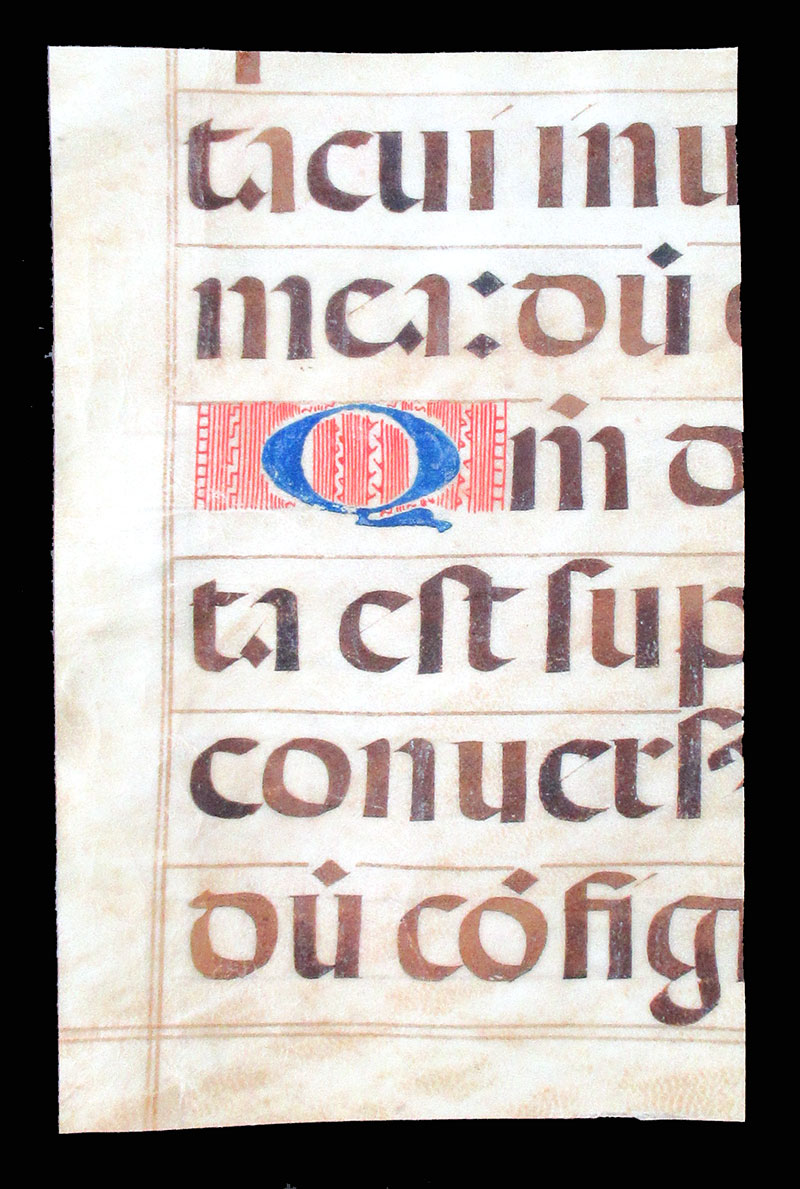 tacuí inu
mea: dū
Qm̄ d
ta eſt ſup
conuerſ
dū cōfig